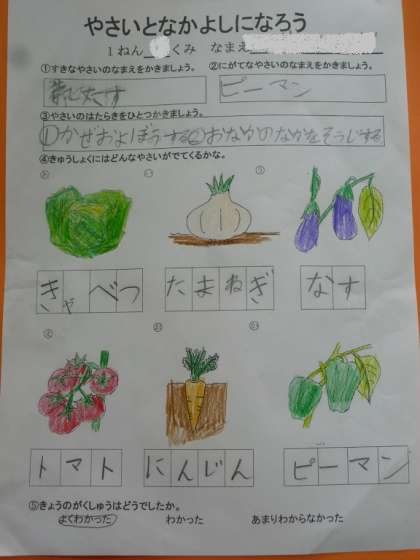 やさいとなかよしになろう
1ねん くみ なまえ
①すきなやさいのなまえをかきましょう。 ②にがてなやさいのなまえをかきましょう。
ピーマン
③やさいのはたらきをひとつかきましょう。
①かぜおよぼうする②おなかのなかをそうじする
④きゅうしょくにはどんなやさいがでてくるかな。
きゃべつ たまねぎ なす
トマト にんじん ピーマン
⑤きょうのがくしゅうはどうでしたか。
よくわかった わかった あまりわからなかった